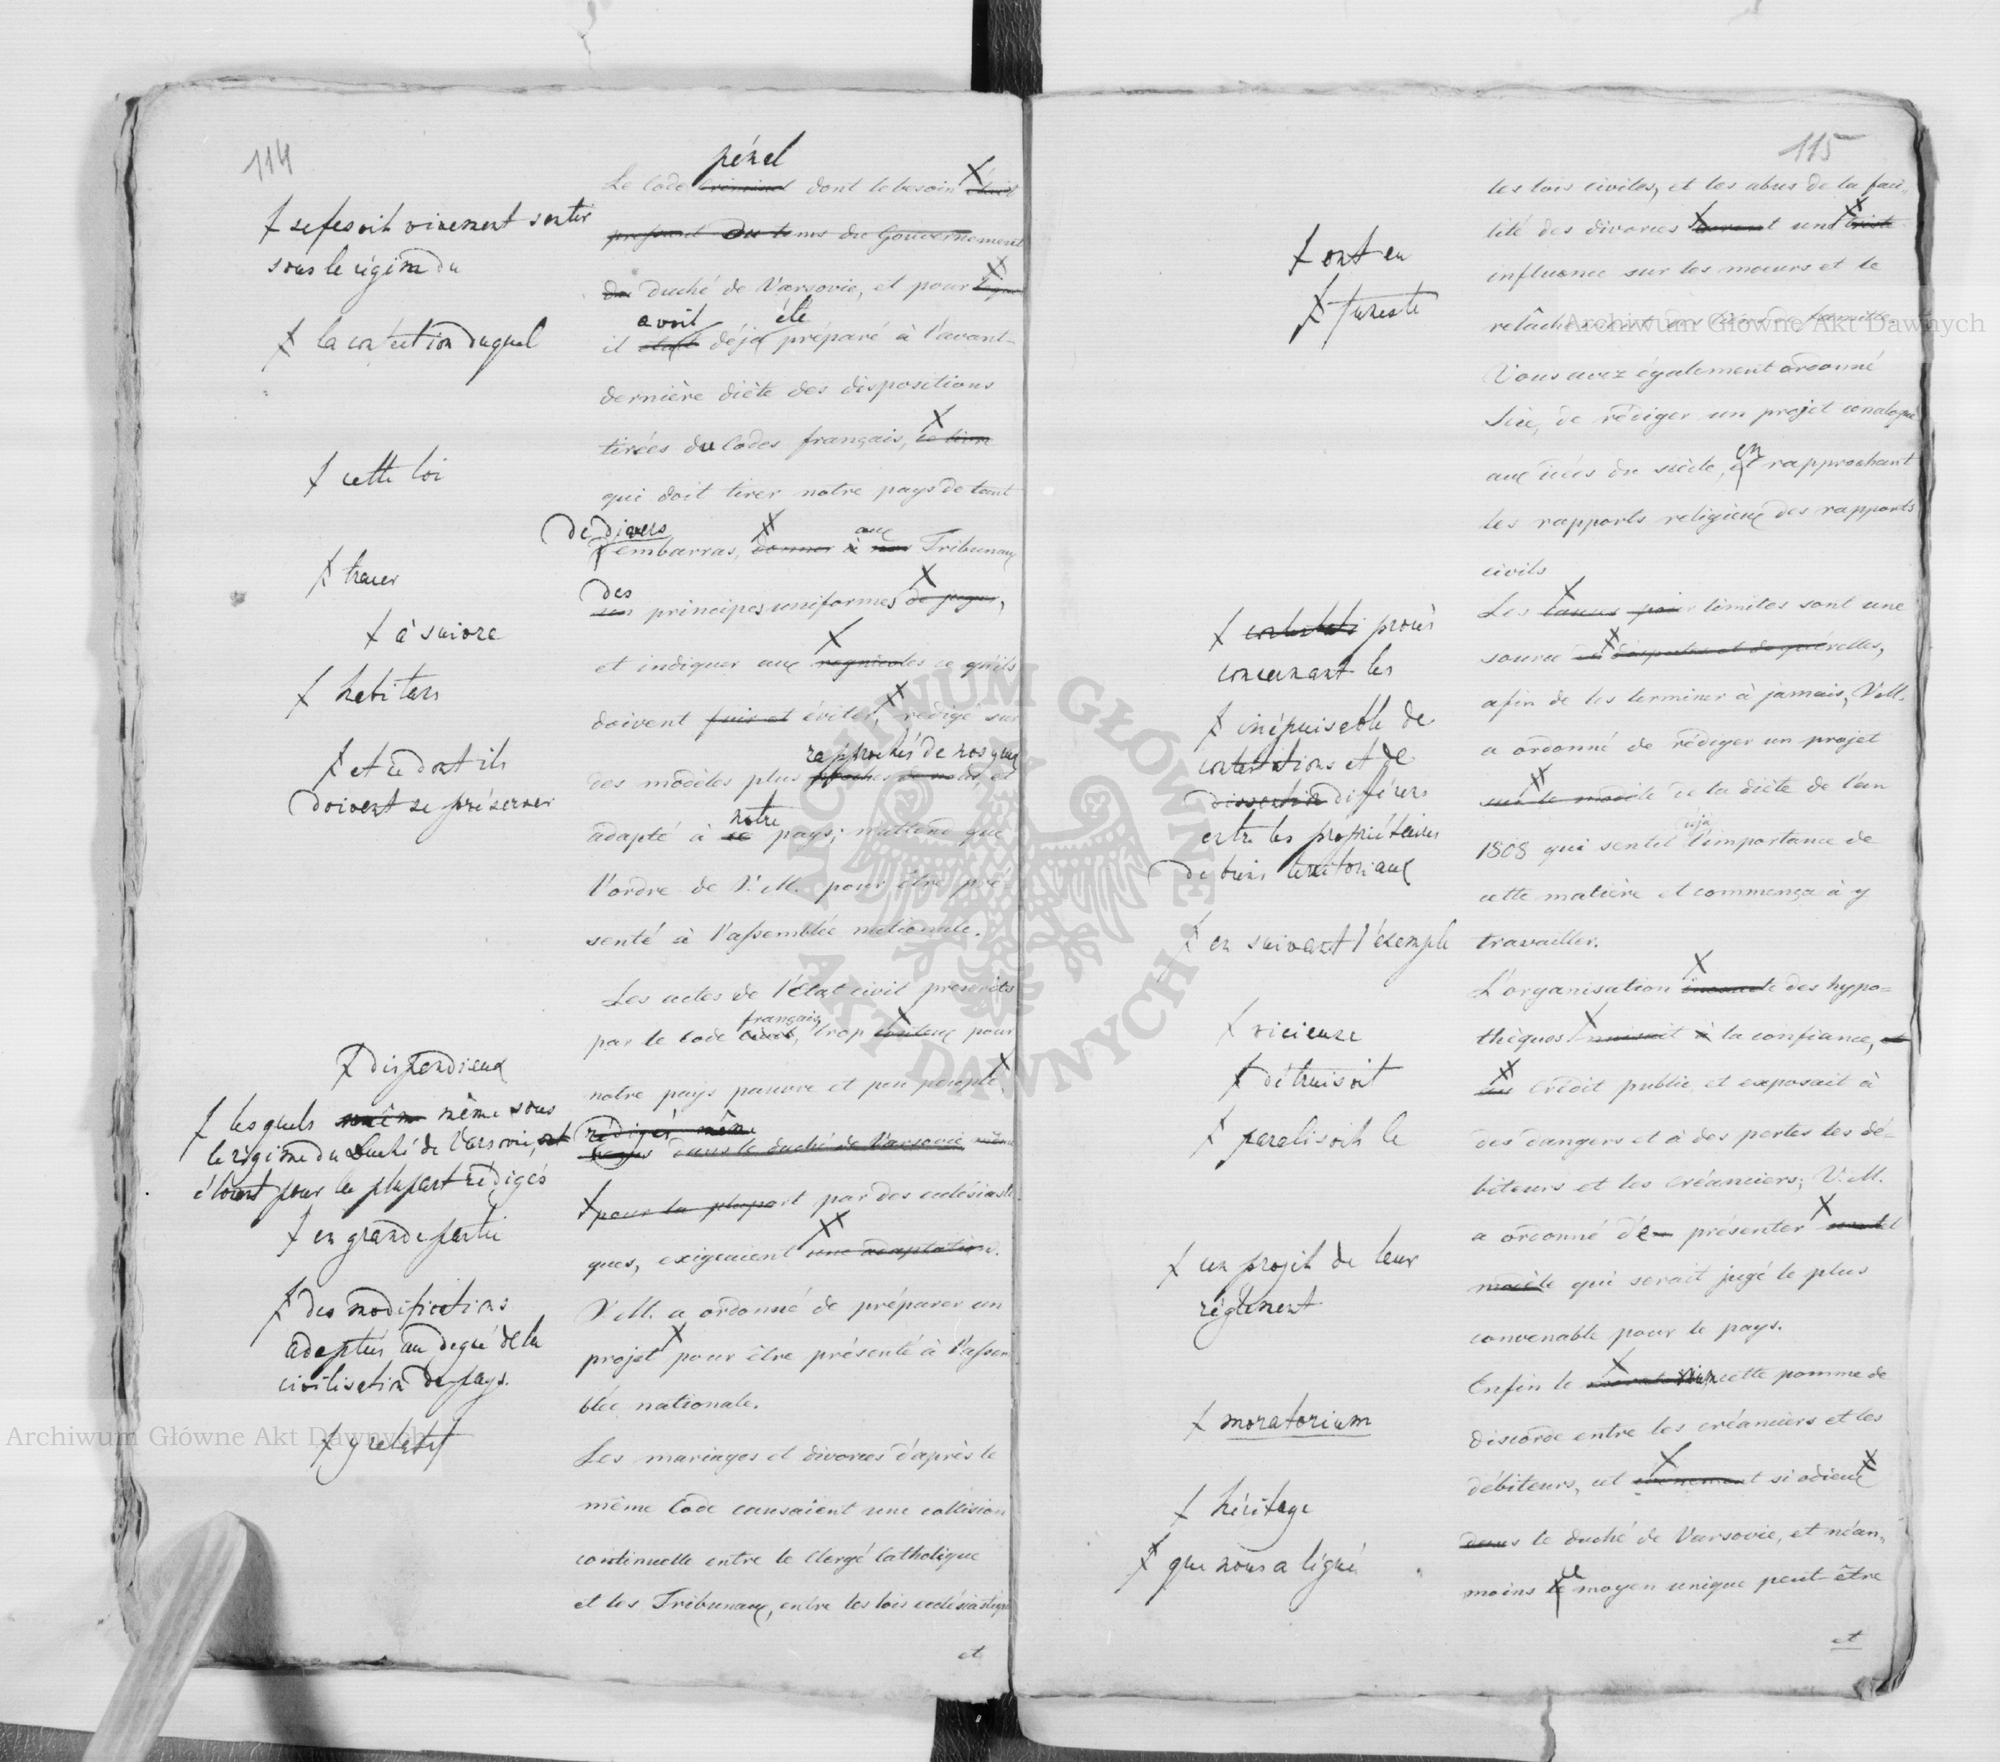 114
pénal
Le Code criminel dont le besoin était
présent du tems du Gouvernement
du duché de Varsovie, et pour lequel
avoit été
il était déjà préparé à l'avant-
dernière diète des dispositions
tirées du Codes français, ce livre
qui doit tirer notre pays de tant
de divers
d'embarras, donner à nos Tribunaux
aux
des
un principes uniformes de juger,
et indiquer aux regnicoles ce qu'ils
doivent fuir et éviter, rédigé sur
rapprochés de nos
des modèles plus proches de nous, et
notre
adapté à ce pays; n'attend que
l'ordre de V. M. pour être pré-
senté à l'assemblée nationale.
Les actes de l'État civil prescrits
français
par le Code civil, trop coûteux pour
notre pays pauvre et peu peuplé,
rédigés même
dans le duché de Varsovie même
pour la plupart par des ecclésiasti-
ques, exigeaient une adaptation.
V. M. a ordonné de préparer un
projet pour être présenté à l'assem
blée nationale.
Les mariages et divorces d'après le
même Code causaient une collision
continuelle entre le Clergé Catholique
et les Tribunaux, entre les lois ecclésiastiques
et
se fesoit vivement sentir
sous le régime du
la confection duquel
cette loi
tracer
à suivre
habitans
et ce dont ils
doivent se préserver
dispendieux
lesquels même même sous
le régime du Duché de Varsovie, ont
étoient pour la plupart rédigés
en grande partie
des modifications
adaptées au degré de la
civilisation du pays.
y relatif
115
les lois civiles, et les abus de la faci-
lité des divorces eurent une triste
influence sur les moeurs et le
relâchement des liens de famille.
Vous avez également ordonné
Sire, de rédiger un projet analogue
en
aux idées du siècle, et rapprochant
les rapports religieux des rapports
civils
Les causes pour limites sont une
source de disputes et de querelles,
afin de les terminer à jamais, V. M.
a ordonné de rédiger un projet
sur le modèle de la diète de l'an
déjà
1808 qui sentit l'importance de
cette matière et commença à y
travailler.
L'organisation inexacte des hypo=
thèques nuisait à la confiance, et
au crédit public, et exposait à
des dangers et à des pertes les dé-
biteurs et les créanciers; V. M.
a ordonné de présenter
modèle qui serait jugé le plus
convenable pour le pays.
Enfin le moratorium cette pomme de
discorde entre les créanciers et les
débiteurs, cet événement si odieux
dans le duché de Varsovie, et néan-
ce
moins le moyen unique peut-être
et
ont eu
funeste
procès
concernant les
inépuisable de
contestations et de
dissentions différens
entre les propriétaires
de biens territoriaux
en suivant l'exemple
vicieuse
détruisoit
paralisoit le
un projet de leur
réglement
moratorium
héritage
que nous a légué
Archiwum Główne Akt Dawnych
Archiwum Główne Akt Dawnych
ARCHIWUM GŁÓWNE AKT DAWNYCH